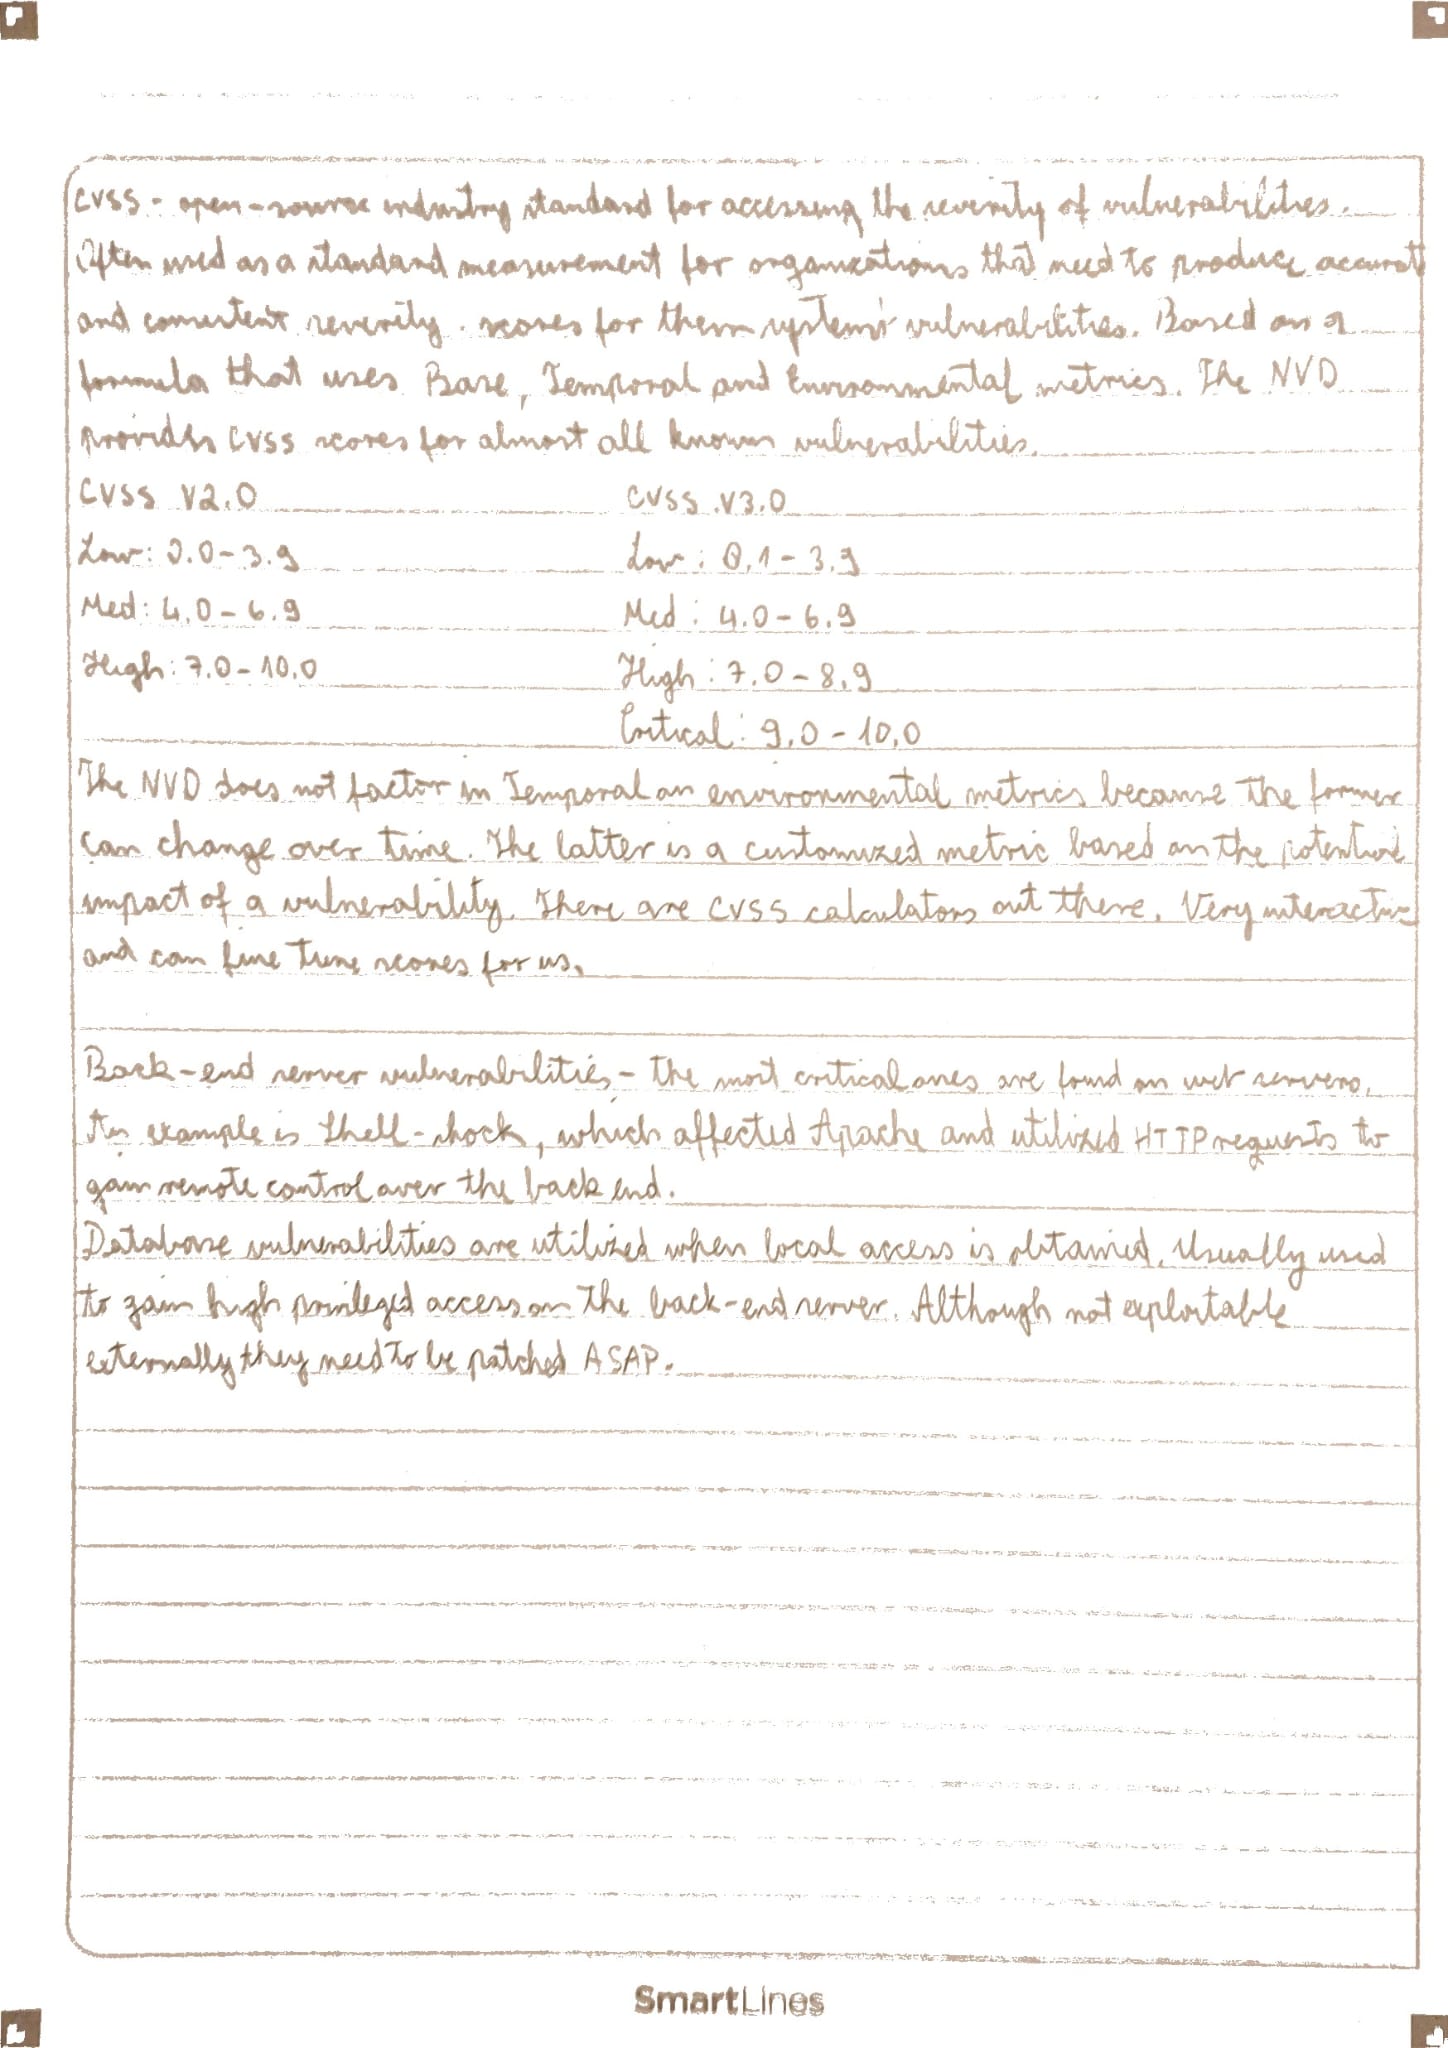 CVSS - open-source industry standard for accessing the severity of vulnerabilities.
Often used as a standard measurement for organizations that need to produce accurate
and consistent severity. scores for them systems' vulnerabilities. Based on a
formula that uses Base, Temporal and Environmental metrics. The NVD
provides CVSS scores for almost all known vulnerabilities.
CVSS V2.0 CVSS .V3.0
Low: 0.0-3.9 Low: 0.1-3.9
Med: 4.0-6.9 Med: 4.0-6.9
High: 7.0-10.0 High: 7.0-8.9
Critical: 9.0-10.0
The NVD does not factor in Temporal an environmental metrics because the former
can change over time. The latter is a customized metric based on the potential
impact of a vulnerability. There are CVSS calculators out there. Very interactive
and can fine tune scores for us.
Back-end server vulnerabilities - the most critical ones are found on web servers.
An example is Shell-shock, which affected Apache and utilized HTTP requests to
gain remote control over the back end.
Database vulnerabilities are utilized when local access is obtained. Usually used
to gain high privileged access on the back-end server. Although not exploitable
externally they need to be patched ASAP.
SmartLines